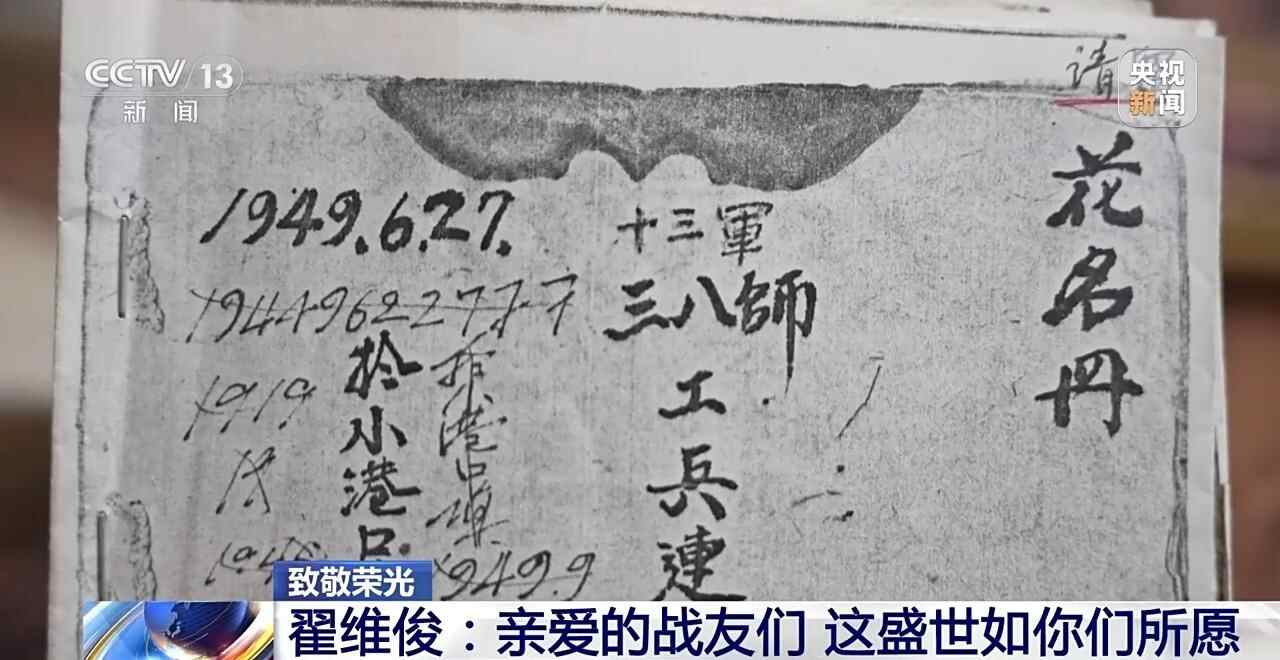 CCTV 13
新闻
央视
新闻
请
花名册
十三軍
三八師
工兵連
1949.6.27.
194496227777
于小港口
1919
949.9
致敬荣光
翟维俊：亲爱的战友们 这盛世如你们所愿